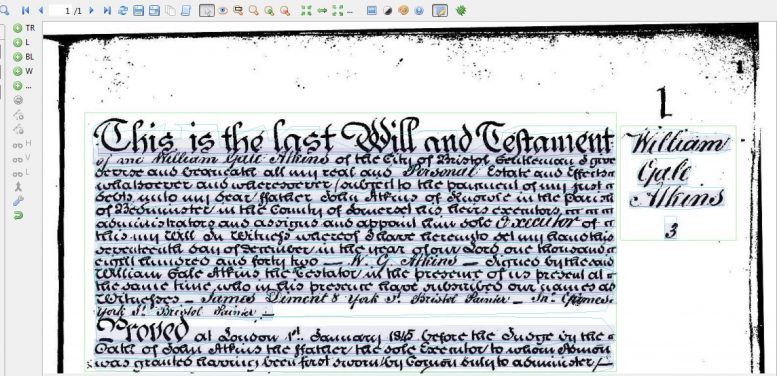 1 /1
TR
L
BL
W
...
H
V
L
1
L
William
Gale
Atkins
3
This is the last Will and Testament
of me William Gale Atkins of the City of Bristol Gentleman I give
devise and bequeath all my real and Personal Estate and Effects
whatsoever and wheresoever subject to the payment of my just
debts unto my dear ffather John Atkins of in the parish
of Bedminster in the County of Somerset his heirs executors
administrators and assigns and appoint him sole Executor of
this my Will In Witness whereof I have hereunto set my hand this
seventeenth day of december in the year of our Lord one thousand
eight hundred and forty two — W. G. Atkins — Signed by the said
William Gale Atkins the Testator in the presence of us present at
the same time who in his presence have subscribed our names as
Witnesses — James Diment 8 York St. Bristol Painter — Jno.
York St. Bristol Painter —
Proved at London 1st. January 1845 before the Judge by the
Oath of John Atkins the ffather the sole Executor to whom Admon
was granted having been first sworn by Comon duly to administer